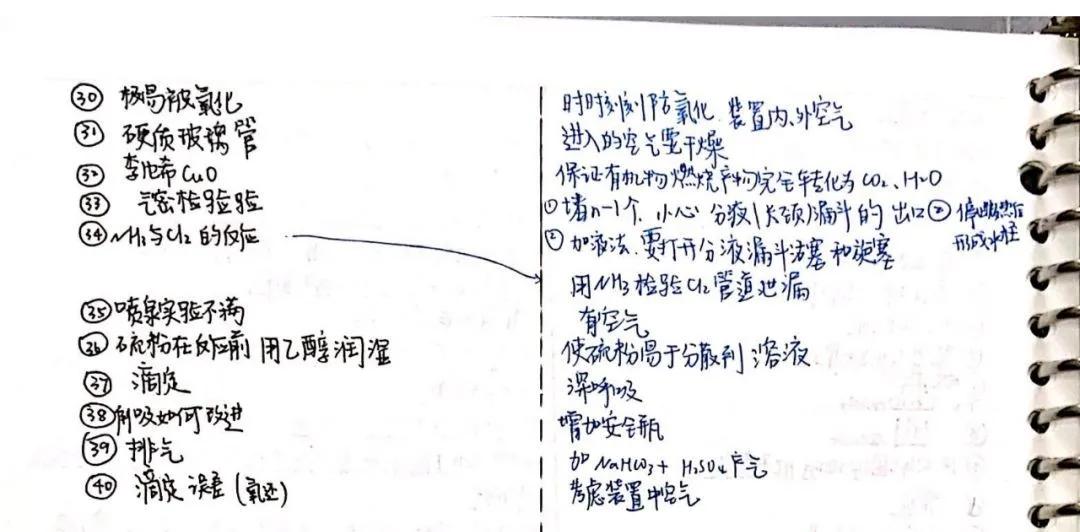 ㉚ 极易被氧化
㉛ 硬质玻璃管
㉜ 李比希 CuO
㉝ 气密检验
㉞ NH₃与Cl₂的反应
㉟ 喷泉实验不满
㊱ 硫粉在反应前用乙醇润湿
㊲ 滴定
㊳ 倒吸如何改进
㊴ 排气
㊵ 滴定误差(氧还)
时时刻刻防氧化 装置内、外空气
进入的空气要干燥
保证有机物燃烧产物完全转化为CO₂、H₂O
①堵n-1个 小心分液(长颈)漏斗的出口②停止加热后
形成水柱
② 加液法.要打开分液漏斗活塞和旋塞
用NH₃检验Cl₂管道泄漏
有空气
使硫粉易于分散到溶液
深呼吸
增加安全瓶
加NaHCO₃+H₂SO₄产气
考虑装置中空气